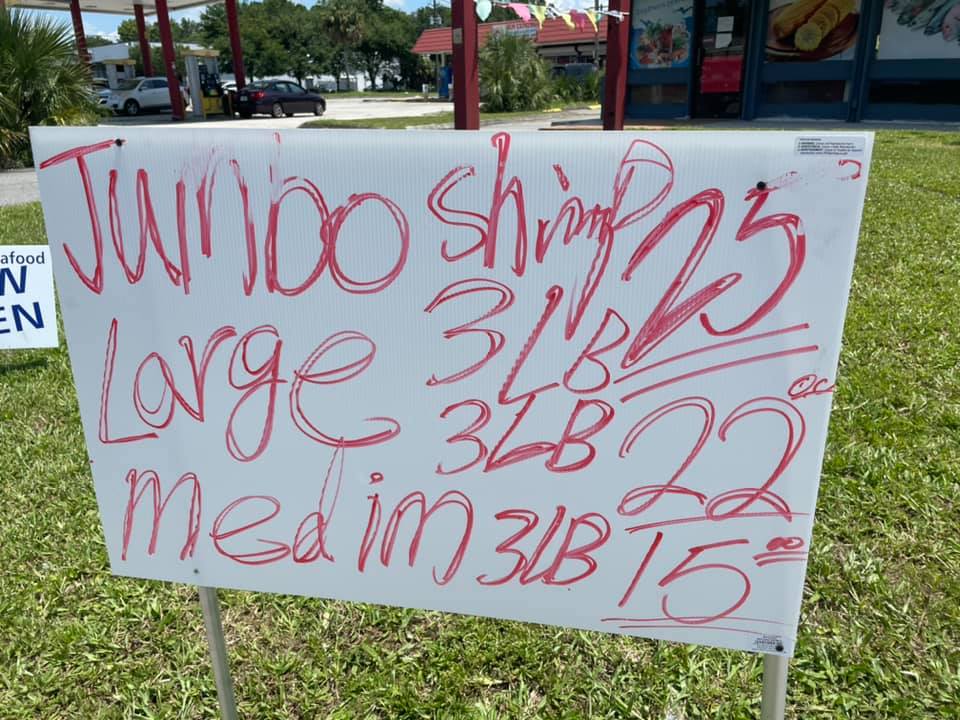 Jumbo Shimp
3LB 25
Large 3LB 22 00
Medim 3LB 15 00
afood
W
EN